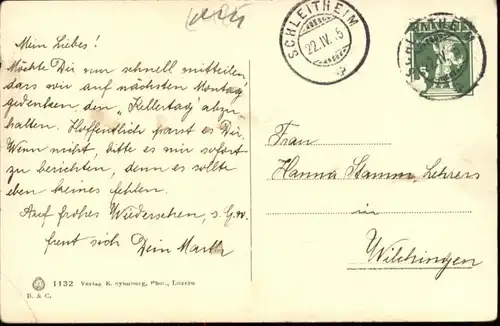 SCHLEITHEIM
22.IV. 5
SCHLEITHEIM
Mein Liebes!
Möchte Dir nur schnell mitteilen,
dass wir auf nächsten Montag
gedenken den „Kellertag" abzu-
halten. Hoffentlich passt es Dir.
Wenn nicht, bitte es mir sofort
zu berichten, denn es sollte
eben keines fehlen.
Auf frohes Wiedersehen, s. G. w.
freut sich Dein Marth
Frau
Hanna Stamm, Lehrers
in
Wilchingen
1132 Verlag E. Synnberg, Phot., Luzern
B. & C.